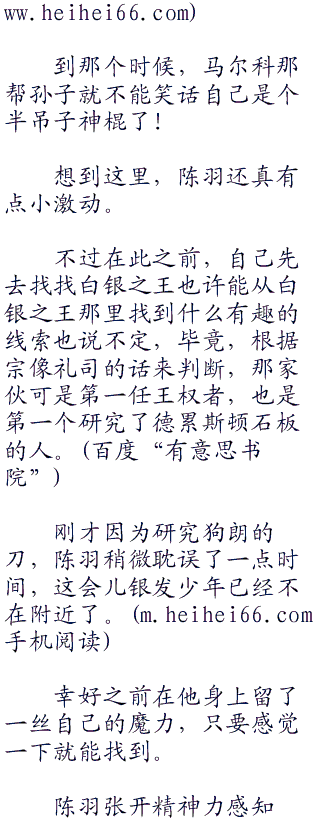 ww.heihei66.com)
到那个时候，马尔科那
帮孙子就不能笑话自己是个
半吊子神棍了！
想到这里，陈羽还真有
点小激动。
不过在此之前，自己先
去找找白银之王也许能从白
银之王那里找到什么有趣的
线索也说不定，毕竟，根据
宗像礼司的话来判断，那家
伙可是第一任王权者，也是
第一个研究了德累斯顿石板
的人。(百度“有意思书
院”)
刚才因为研究狗朗的
刀，陈羽稍微耽误了一点时
间，这会儿银发少年已经不
在附近了。(m.heihei66.com
手机阅读)
幸好之前在他身上留了
一丝自己的魔力，只要感觉
一下就能找到。
陈羽张开精神力感知